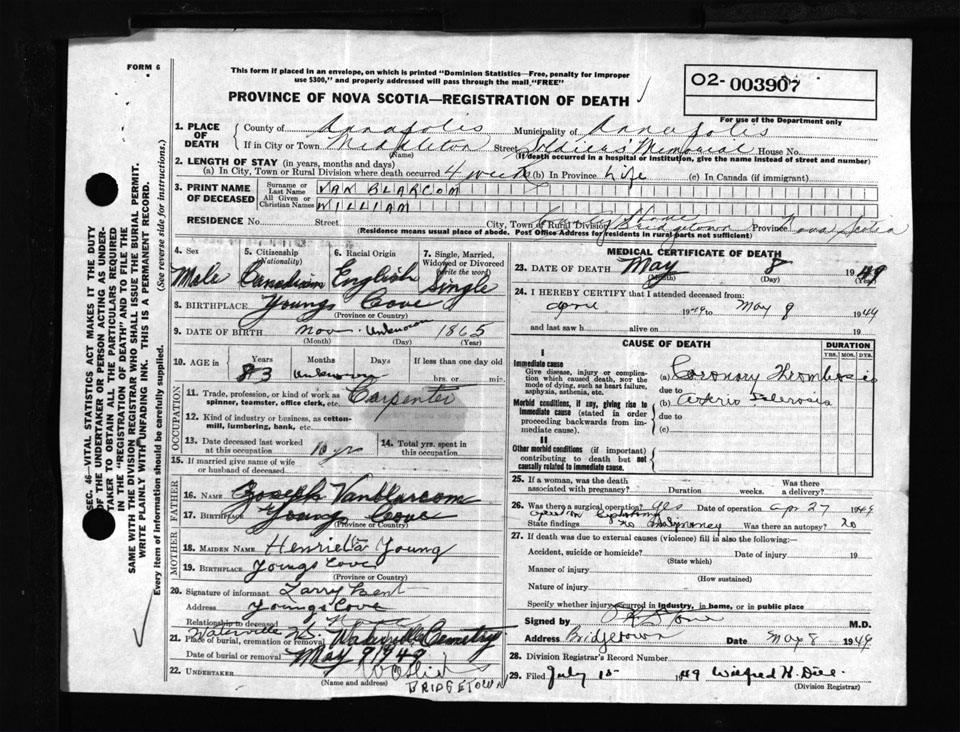 FORM 6
This form if placed in an envelope, on which is printed "Dominion Statistics—Free, penalty for improper
use $300," and properly addressed will pass through the mail "FREE"
O2- 003907
PROVINCE OF NOVA SCOTIA—REGISTRATION OF DEATH
For use of the Department only
1. PLACE OF DEATH { County of Annapolis Municipality of Annapolis
If in City or Town Middleton Street Soldiers' Memorial House No.
(Name) (If death occurred in a hospital or institution, give the name instead of street and number)
2. LENGTH OF STAY (in years, months and days)
(a) In City, Town or Rural Division where death occurred 4 weeks (b) In Province Life (c) In Canada (if immigrant)
3. PRINT NAME OF DECEASED { Surname or Last Name VAN BLARCOM
All Given or Christian Names WILLIAM
RESIDENCE No. Street City, Town or Rural Division Bridgetown Province Nova Scotia
(Residence means usual place of abode. Post Office Address for residents in rural parts not sufficient)
4. Sex Male
5. Citizenship (Nationality) Canadian
6. Racial Origin English
7. Single, Married, Widowed or Divorced (write the word) Single
8. BIRTHPLACE Youngs Cove
(Province or Country)
9. DATE OF BIRTH Nov. Unknown 1865
(Month) (Day) (Year)
10. AGE in { Years Months Days If less than one day old
83 Unknown hrs. or min.
OCCUPATION
11. Trade, profession, or kind of work as spinner, teamster, office clerk, etc. Carpenter
12. Kind of industry or business, as cotton-mill, lumbering, bank, etc.
13. Date deceased last worked at this occupation 10 yr
14. Total yrs. spent in this occupation
15. If married give name of wife or husband of deceased
FATHER
16. NAME Joseph Vanblarcom
17. BIRTHPLACE Young Cove
(Province or Country)
MOTHER
18. MAIDEN NAME Henrietta Young
19. BIRTHPLACE Youngs Cove
(Province or Country)
20. Signature of informant Larry Bent
Address Youngs Cove
Relationship to deceased
21. Place of burial, cremation or removal Waterville N.S. Waterville Cemetry
Date of burial or removal May 9 1949
22. UNDERTAKER
(Name and address) BRIDGETOWN
MEDICAL CERTIFICATE OF DEATH
23. DATE OF DEATH May 8 1949
(Month) (Day) (Year)
24. I HEREBY CERTIFY that I attended deceased from:
1949 to May 8 1949
and last saw h alive on 19
CAUSE OF DEATH DURATION
YRS. MOS. DYS.
I
Immediate cause
Give disease, injury or complication which caused death, not the mode of dying, such as heart failure, asphyxia, asthenia, etc.
(a) Coronary Thrombosis
due to
Morbid conditions, if any, giving rise to immediate cause (stated in order proceeding backwards from immediate cause).
(b) Arterio Sclerosis
due to
(c)
II
Other morbid conditions (if important) contributing to death but not causally related to immediate cause.
25. If a woman, was the death associated with pregnancy? Duration weeks. Was there a delivery?
26. Was there a surgical operation? Yes Date of operation Apr 27 1949
State findings Was there an autopsy? No
27. If death was due to external causes (violence) fill in also the following:
Accident, suicide or homicide? Date of injury 19
(State which)
Manner of injury
(How sustained)
Nature of injury
Specify whether injury occurred in industry, in home, or in public place
Signed by M.D.
Address Bridgetown Date May 8 1949
28. Division Registrar's Record Number
29. Filed July 15 1949 Wilfred H. Dill.
(Division Registrar)
SEC. 46—VITAL STATISTICS ACT MAKES IT THE DUTY
OF THE UNDERTAKER OR PERSON ACTING AS UNDER-
TAKER TO OBTAIN ALL THE PARTICULARS REQUIRED
IN THE "REGISTRATION OF DEATH" AND TO FILE THE
SAME WITH THE DIVISION REGISTRAR WHO SHALL ISSUE THE BURIAL PERMIT.
WRITE PLAINLY WITH UNFADING INK. THIS IS A PERMANENT RECORD.
Every item of information should be carefully supplied. (See reverse side for instructions.)